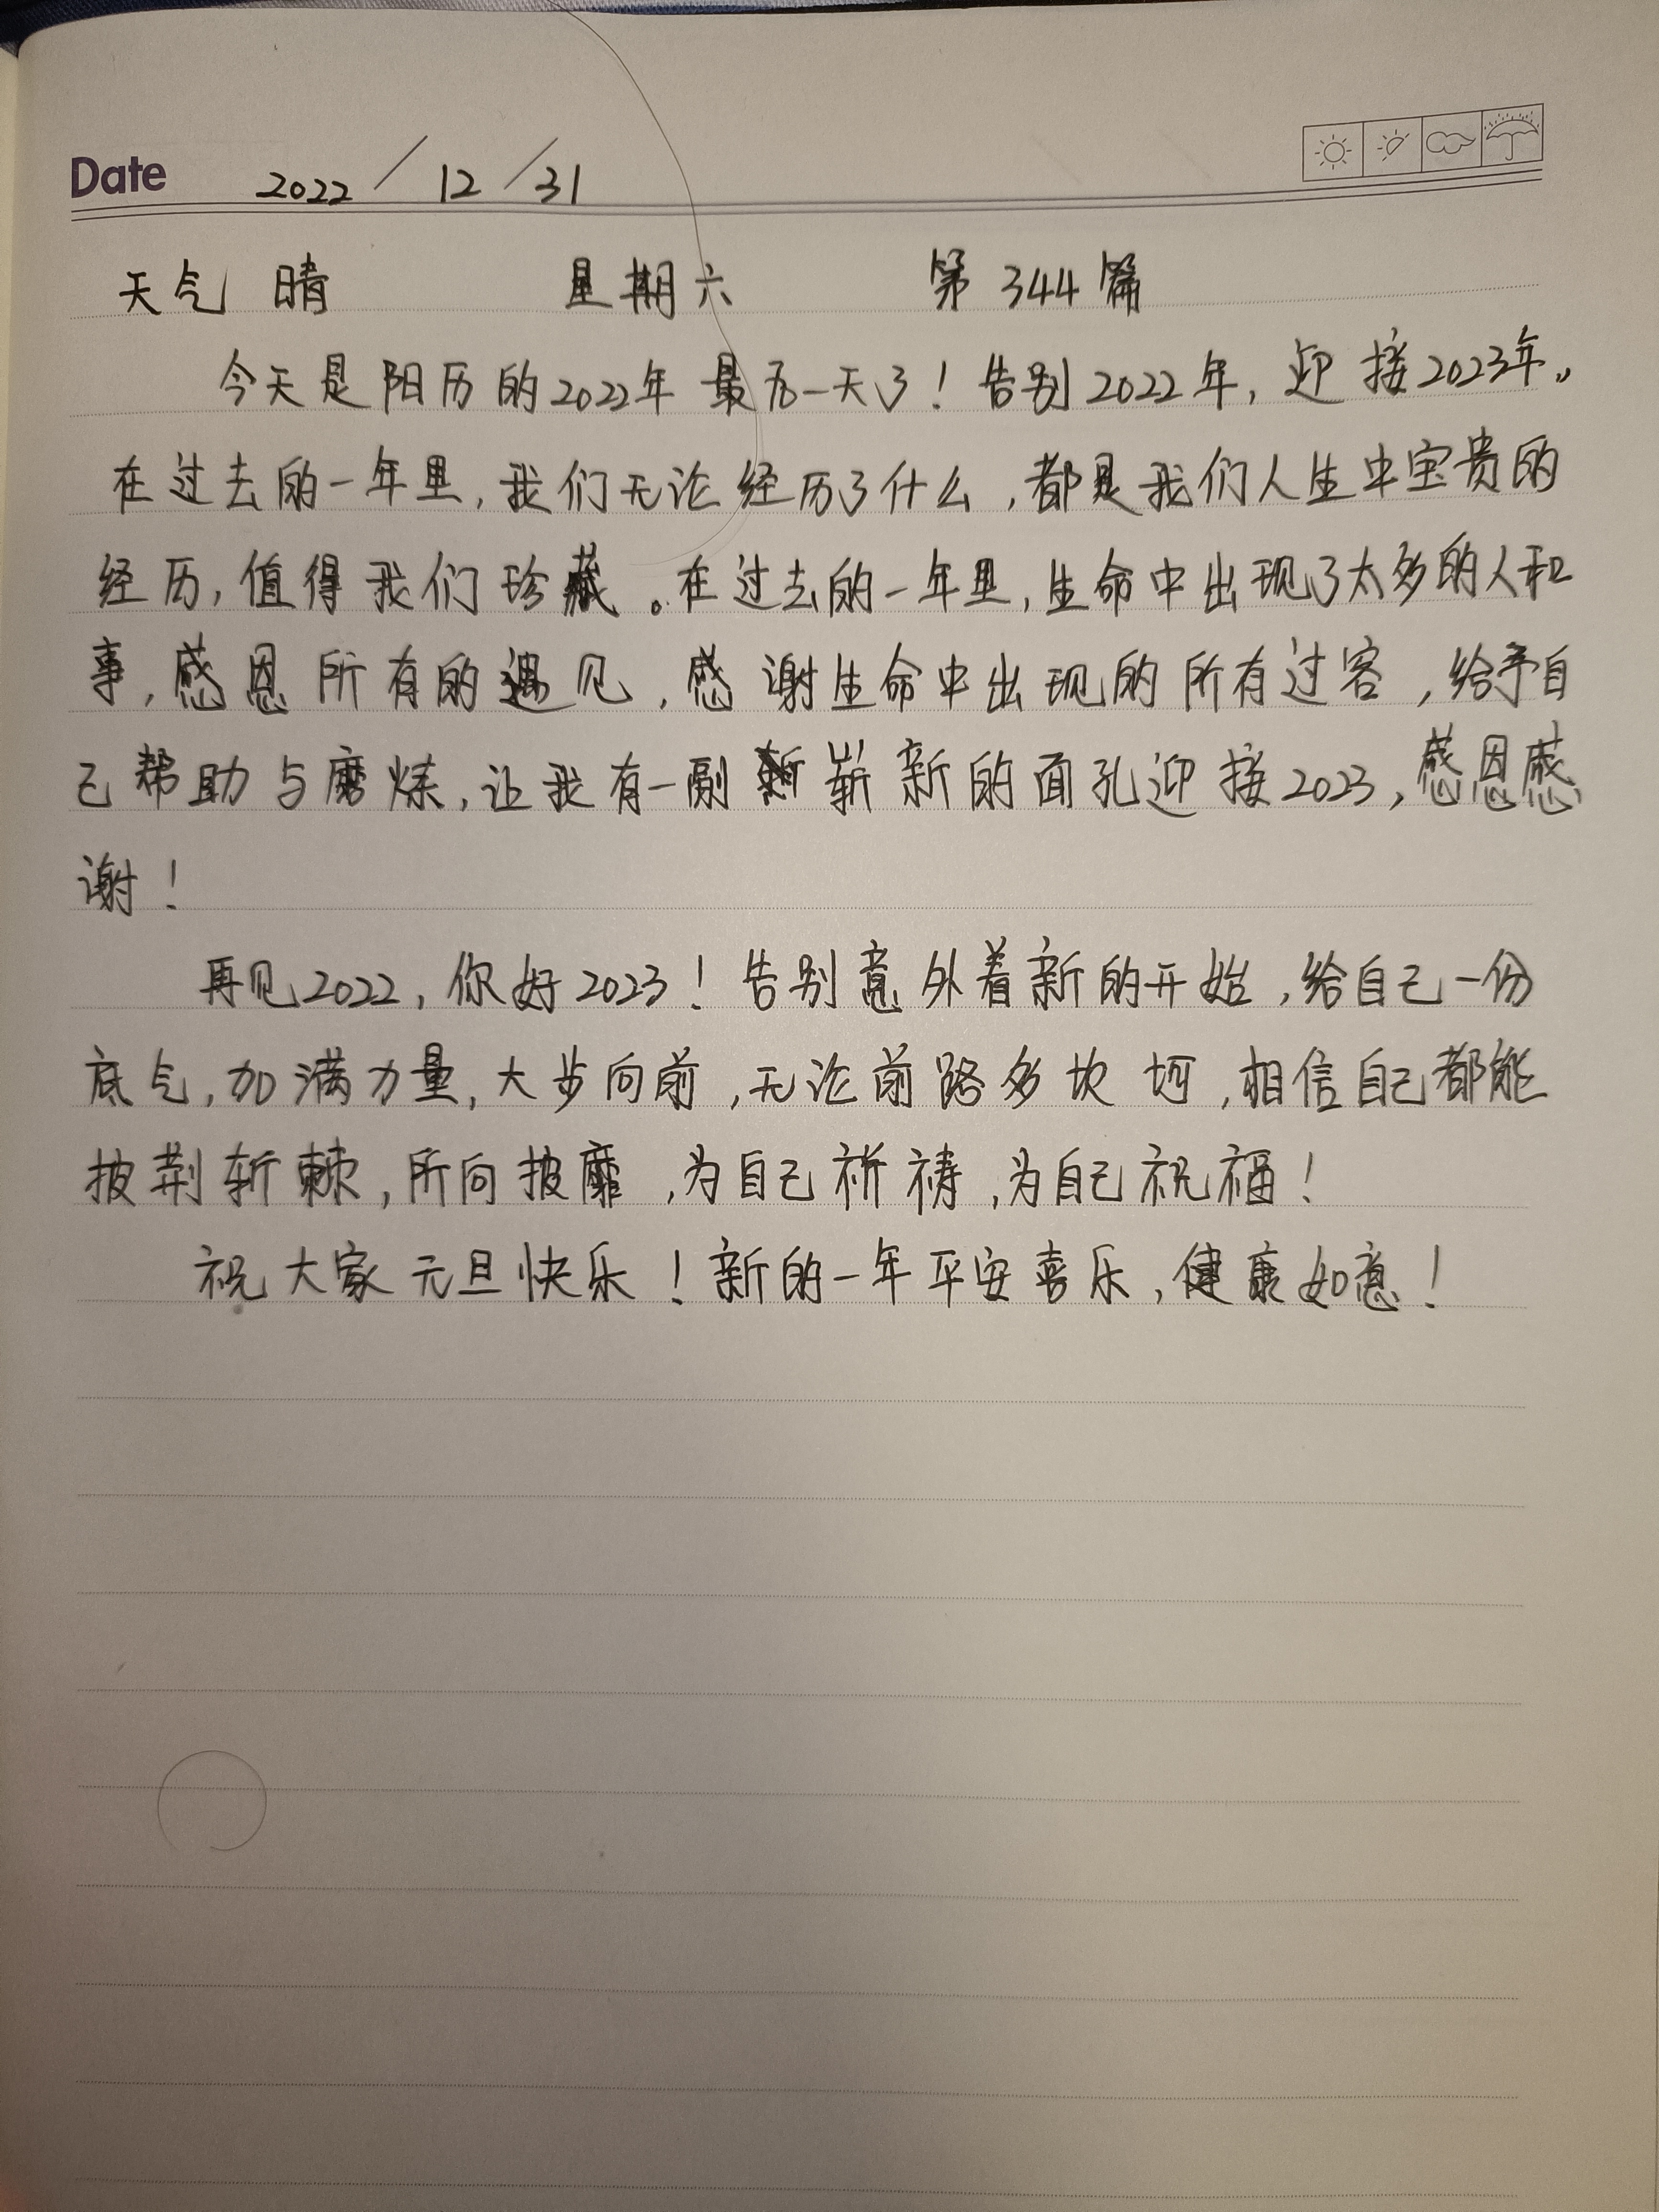 Date 2022/12/31
天气 晴 星期六 第344篇
今天是阳历的2022年最后一天了！告别2022年，迎接2023年。
在过去的一年里，我们无论经历了什么，都是我们人生中宝贵的
经历，值得我们珍藏。在过去的一年里，生命中出现了太多的人和
事，感恩所有的遇见，感谢生命中出现的所有过客，给予自
己帮助与磨炼，让我有一副崭新的面孔迎接2023，感恩感
谢！
再见2022，你好2023！告别意外着新的开始，给自己一份
底气，加满力量，大步向前，无论前路多坎坷，相信自己都能
披荆斩棘，所向披靡，为自己祈祷，为自己祝福！
祝大家元旦快乐！新的一年平安喜乐，健康如意！